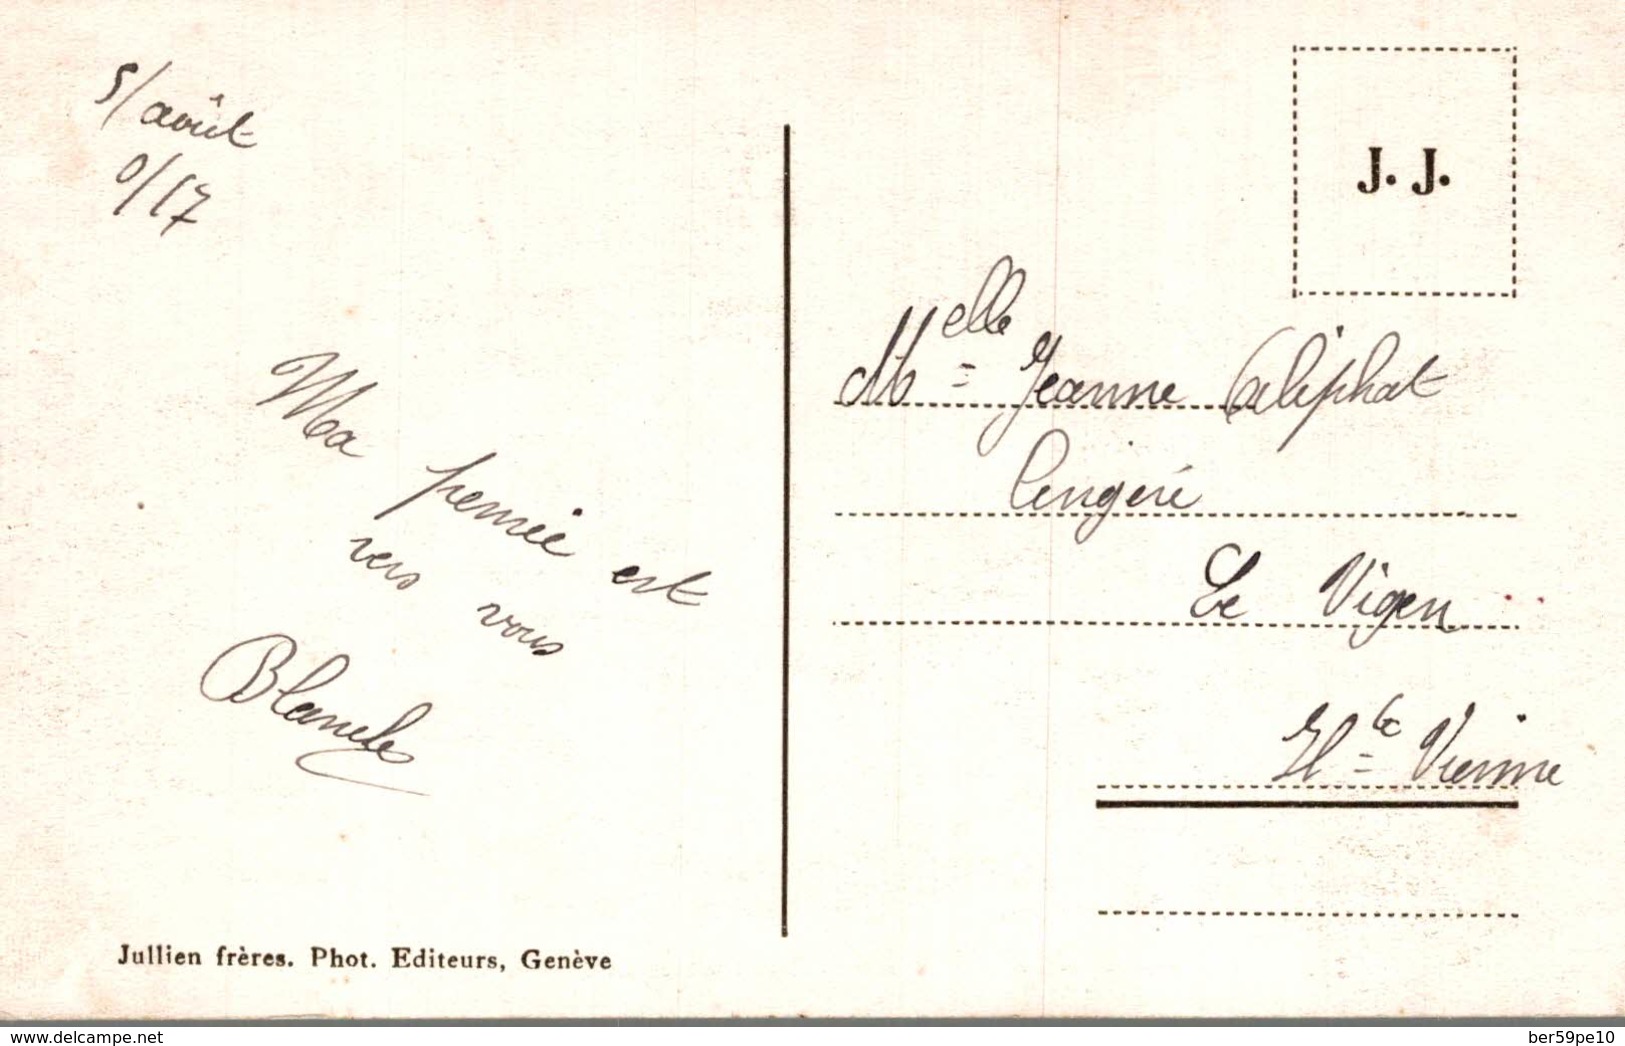 5/août
0/17
J. J.
Ma pensée est
vers vous
Blanche
Melle Jeanne Caliphat
Lengéré
Le Vigen
Hte Vienne
Jullien frères. Phot. Editeurs, Genève
www.delcampe.net
ber59pe10